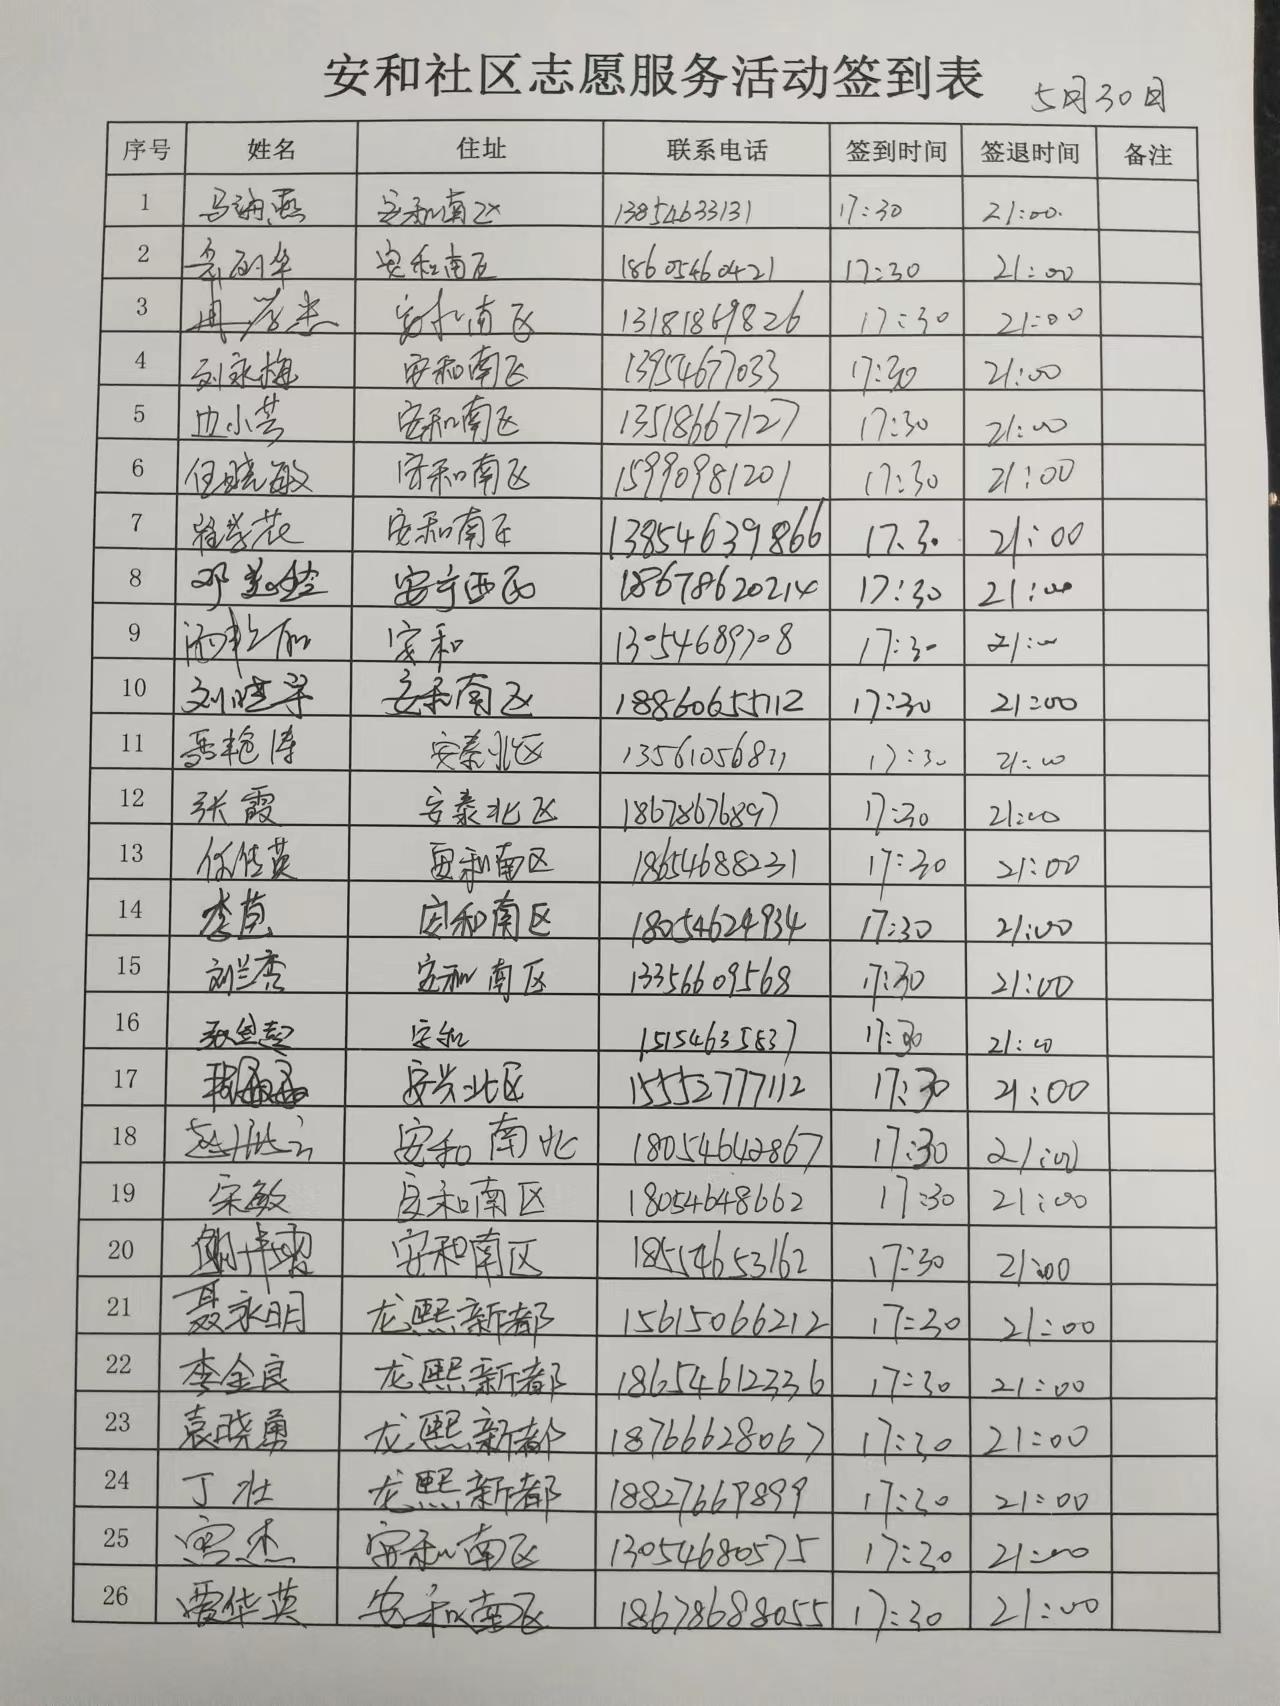 安和社区志愿服务活动签到表 5月30日
序号 姓名 住址 联系电话 签到时间 签退时间 备注
1 马 燕 安和南区 13854633131 17:30 21:00.
2 华 安和南区 18605460421 17:30 21:00
3 冉 杰 安和南区 13181869826 17:30 21:00
4 刘永梅 安和南区 13954677033 17:30 21:00
5 边小芸 安和南区 13518667127 17:30 21:00
6 任晓敏 安和南区 15990981201 17:30 21:00
7 程学花 安和南区 13854639866 17.30 21:00
8 邓美玲 安宁西区 18678620214 17:30 21:00
9 安和 13054689708 17:30 21:00
10 刘晓 安和南区 18860655112 17:30 21:00
11 艳涛 安泰北区 13561056811 17:30 21:00
12 张霞 安泰北区 18678676897 17:30 21:00
13 任传英 安和南区 18654688231 17:30 21:00
14 李苗 安和南区 18054624934 17:30 21:00
15 刘兰香 安和南区 13356609568 17:30 21:00
16 安和 15154635837 17:30 21:00
17 安兴北区 15552777112 17:30 21:00
18 赵 安和南北 18054642867 17:30 21:00
19 宋敏 安和南区 18054648662 17:30 21:00
20 安和南区 18554653162 17:30 21:00
21 聂永明 龙熙新都 15615066212 17:30 21:00
22 李金良 龙熙新都 18654612336 17:30 21:00
23 袁晓勇 龙熙新都 18766628067 17:30 21:00
24 丁壮 龙熙新都 18827669899 17:30 21:00
25 宫杰 安和南区 13054680575 17:30 21:00
26 贾华英 安和南区 18678688055 17:30 21:00